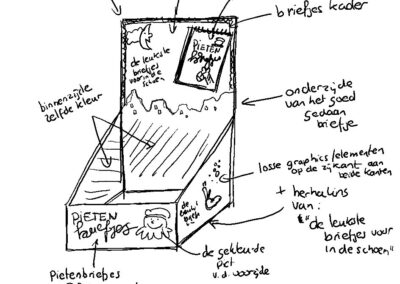 briefjes kader
PIETEN
de leukste
briefjes
voor in de
schoen
binnenzijde
zelfde kleur
onderzijde
van het goed
gedaan
briefje
losse graphics/elementen
op de zijkant aan
beide kanten
+ herhaling
van:
"de leukste
briefjes voor
in de schoen"
PIETEN
briefjes
de gekleurde
piet
v.d. voorzijde
Pietenbriefjes